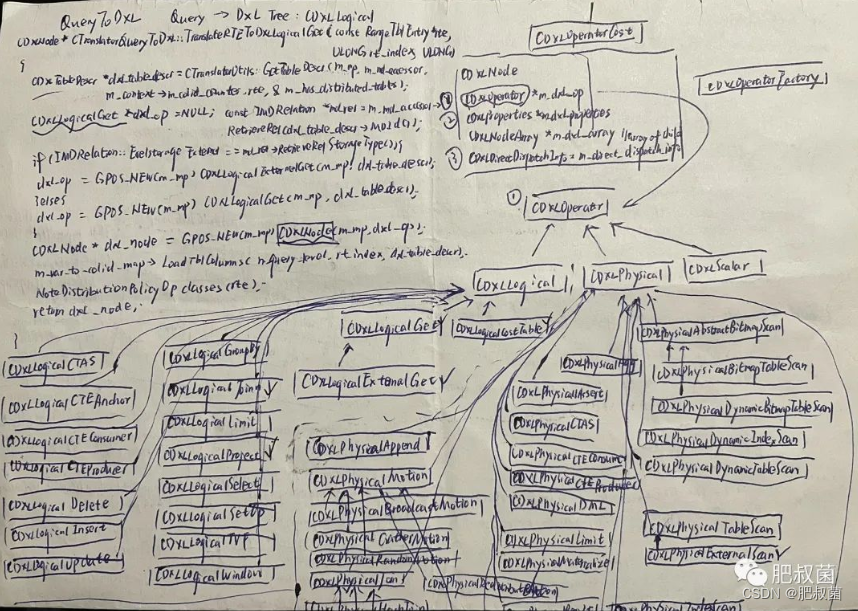 QueryToDXL Query → DXL Tree: CDXLLogical
CDXLNode * CTranslatorQueryToDXL::TranslateRTEToDXLLogicalGet( const RangeTblEntry *rte,
ULONG rt_index, ULONG)
{
CDXLTableDescr *dxl_table_descr = CTranslatorUtils::GetTableDescr(m_mp, m_md_accessor,
m_context->m_colid_counter, rte, & m_has_distributed_tables);
CDXLLogicalGet *dxl_op = NULL; const IMDRelation *md_rel = m_md_accessor->
RetrieveRel(dxl_table_descr->MDId());
if (IMDRelation::ErelstorageExternal == md_rel->RetrieveRelStorageType()){
dxl_op = GPOS_NEW(m_mp) CDXLLogicalExternalGet(m_mp, dxl_table_descr);
}else{
dxl_op = GPOS_NEW(m_mp) CDXLLogicalGet(m_mp, dxl_table_descr);
}
CDXLNode * dxl_node = GPOS_NEW(m_mp) CDXLNode(m_mp, dxl_op);
m_var_to_colid_map->LoadTblColumns(m_query_level, rt_index, dxl_table_descr);
NoteDistributionPolicyOpclasses(rte);
return dxl_node;
}
CDXLOperatorCost
CDXLNode
① CDXLOperator *m_dxl_op
② CDXLProperties *m_dxl_properties
CDXLNodeArray *m_dxl_array //array of child
③ CDXLDirectDispatchInfo = m_direct_dispatch_info
CDXLOperatorFactory
① CDXLOperator
CDXLLogical
CDXLPhysical
CDXLScalar
CDXLLogicalGet
CDXLLogicalConstTable
CDXLLogicalExternalGet
CDXLLogicalCTAS
CDXLLogicalCTEAnchor
CDXLLogicalCTEConsumer
CDXLLogicalCTEProducer
CDXLLogicalDelete
CDXLLogicalInsert
CDXLLogicalUpdate
CDXLLogicalGroupBy
CDXLLogicalJoin
CDXLLogicalLimit
CDXLLogicalProject
CDXLLogicalSelect
CDXLLogicalSetOp
CDXLLogicalTVF
CDXLLogicalWindow
CDXLPhysicalAppend
CDXLPhysicalMotion
CDXLPhysicalBroadcastMotion
CDXLPhysicalGatherMotion
CDXLPhysicalRandomMotion
CDXLPhysicalJoin
CDXLPhysicalAgg
CDXLPhysicalAssert
CDXLPhysicalCTAS
CDXLPhysicalCTEConsumer
CDXLPhysicalCTEProducer
CDXLPhysicalDML
CDXLPhysicalLimit
CDXLPhysicalMaterialize
CDXLPhysicalAbstractBitmapScan
CDXLPhysicalBitmapTableScan
CDXLPhysicalDynamicBitmapTableScan
CDXLPhysicalDynamicIndexScan
CDXLPhysicalDynamicTableScan
CDXLPhysicalTableScan
CDXLPhysicalExternalScan
肥叔菌
CSDN @肥叔菌